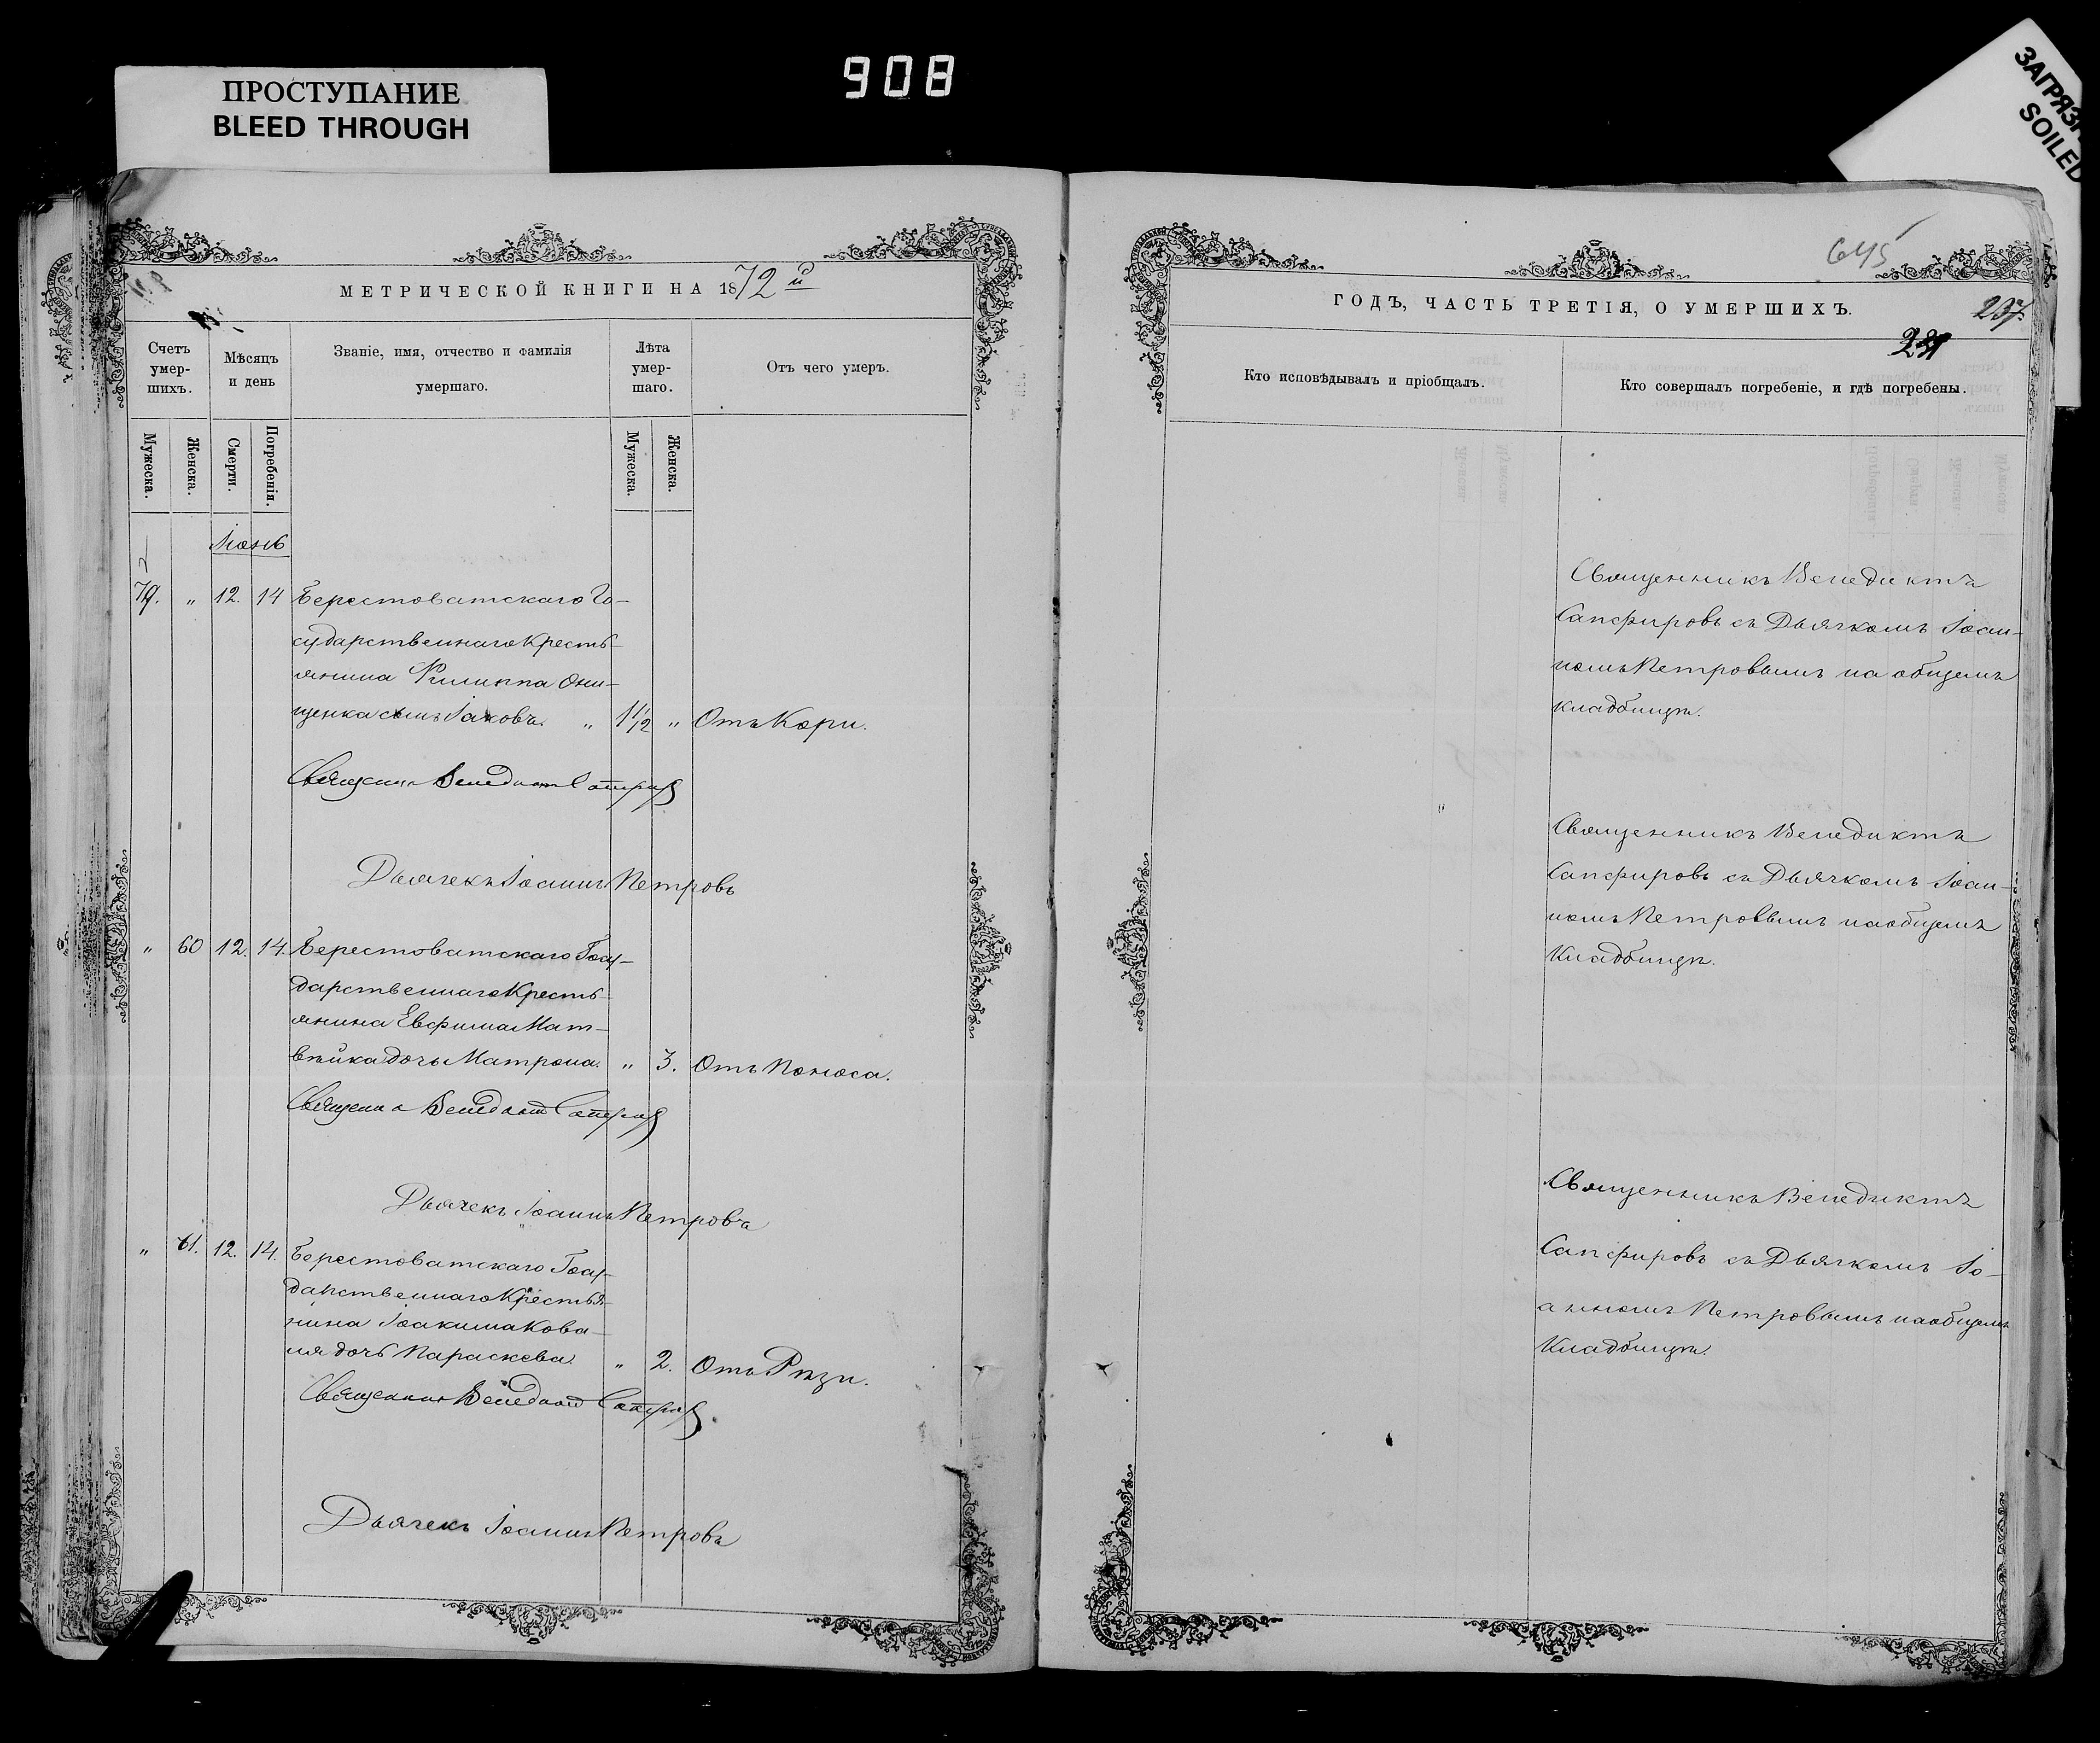 908
ПРОСТУПАНИЕ
BLEED THROUGH
SOILED
МЕТРИЧЕСКОЙ КНИГИ НА 1872й
Счетъ умер-шихъ.
Мѣсяцъ и день
Званіе, имя, отчество и фамилія умершаго.
Лѣта умер-шаго.
Отъ чего умеръ.
Мужеска.
Женска.
Смерти.
Погребенія.
Мужеска.
Женска.
Іюнь
79. " 12. 14 Берестоватскаго Го-
сударственнаго Кресть-
янина Филиппа Они-
щенка сынъ Іаковъ. " 1 1/2 " Отъ Кори.
Священникъ Венедиктъ Сапфировъ
Дьячекъ Іоаннъ Петровъ
" 60 12. 14. Берестоватскаго Госу-
дарственнаго Кресть-
янина Евфима Мат-
вѣйка дочь Матрона. " 3. Отъ Поноса.
Священникъ Венедиктъ Сапфировъ
Дьячекъ Іоаннъ Петровъ
" 61. 12. 14. Берестоватскаго Госу-
дарственнаго Крестья-
нина Іоакима Кова-
ля дочь Параскева. " 2. Отъ Рѣзи.
Священникъ Венедиктъ Сапфировъ
Дьячекъ Іоаннъ Петровъ
645
ГОДЪ, ЧАСТЬ ТРЕТІЯ, О УМЕРШИХЪ.
237.
Кто исповѣдывалъ и пріобщалъ.
Кто совершалъ погребеніе, и гдѣ погребены.
Священникъ Венедиктъ
Сапфировъ съ Дьячкомъ Іоан-
номъ Петровымъ на общемъ
кладбищѣ.
Священникъ Венедиктъ
Сапфировъ съ Дьячкомъ Іоан-
номъ Петровымъ на общемъ
Кладбищѣ.
Священникъ Венедиктъ
Сапфировъ съ Дьячкомъ Іо-
анномъ Петровымъ на общемъ
Кладбищѣ.